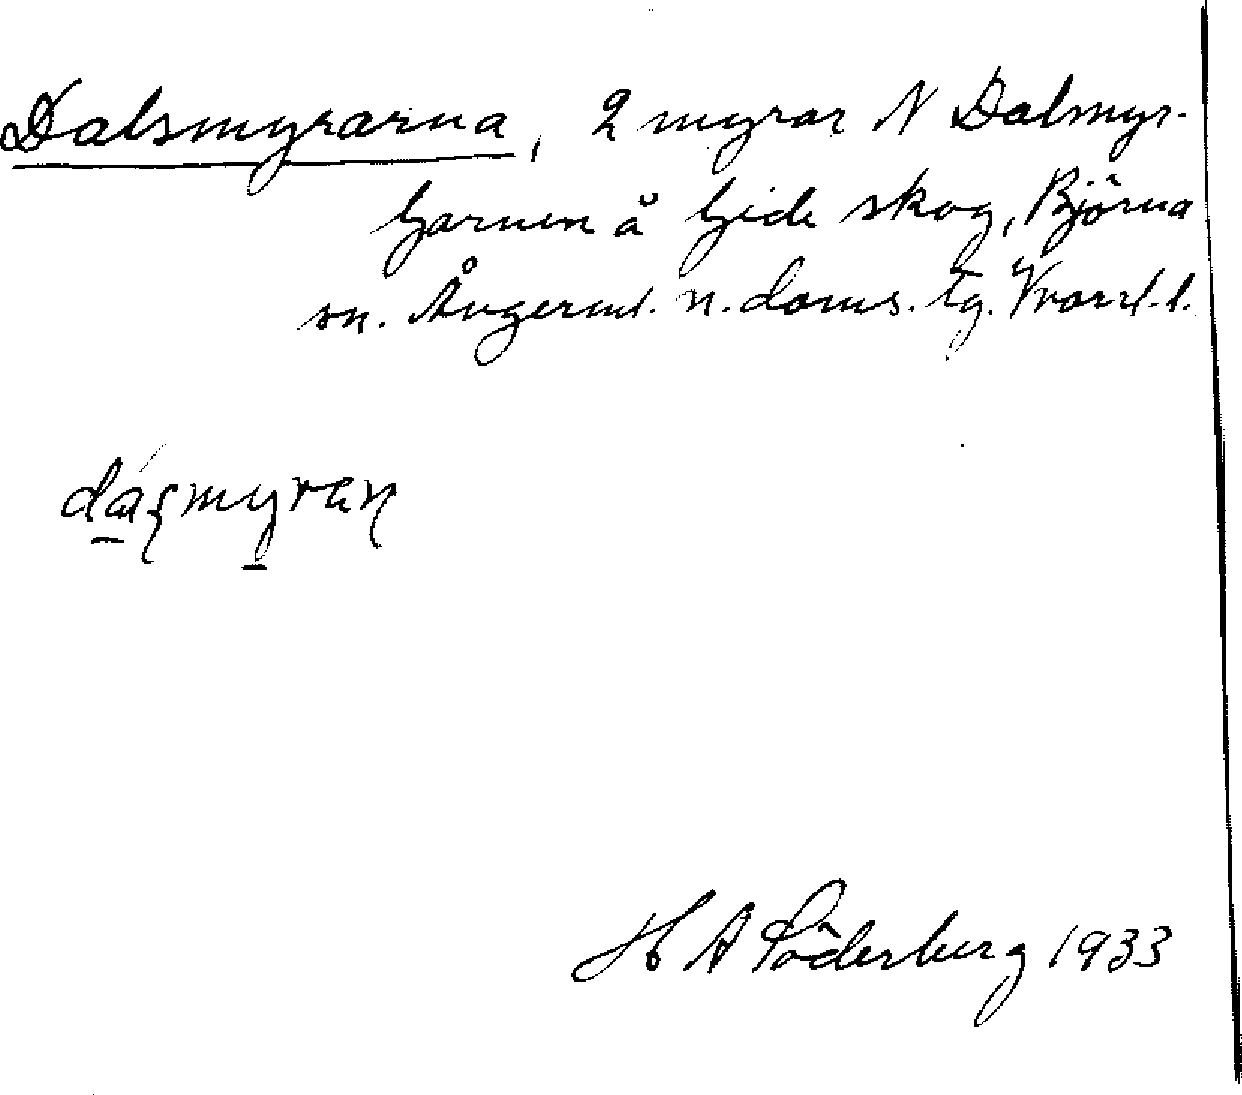 Dalsmyrarna, 2 myrar N Dalmyr-
tjärnen å Gide skog, Björna
sn. Ångerml. n. doms. tg. Västernorrl. l.
dásmyran
H A Söderberg 1933